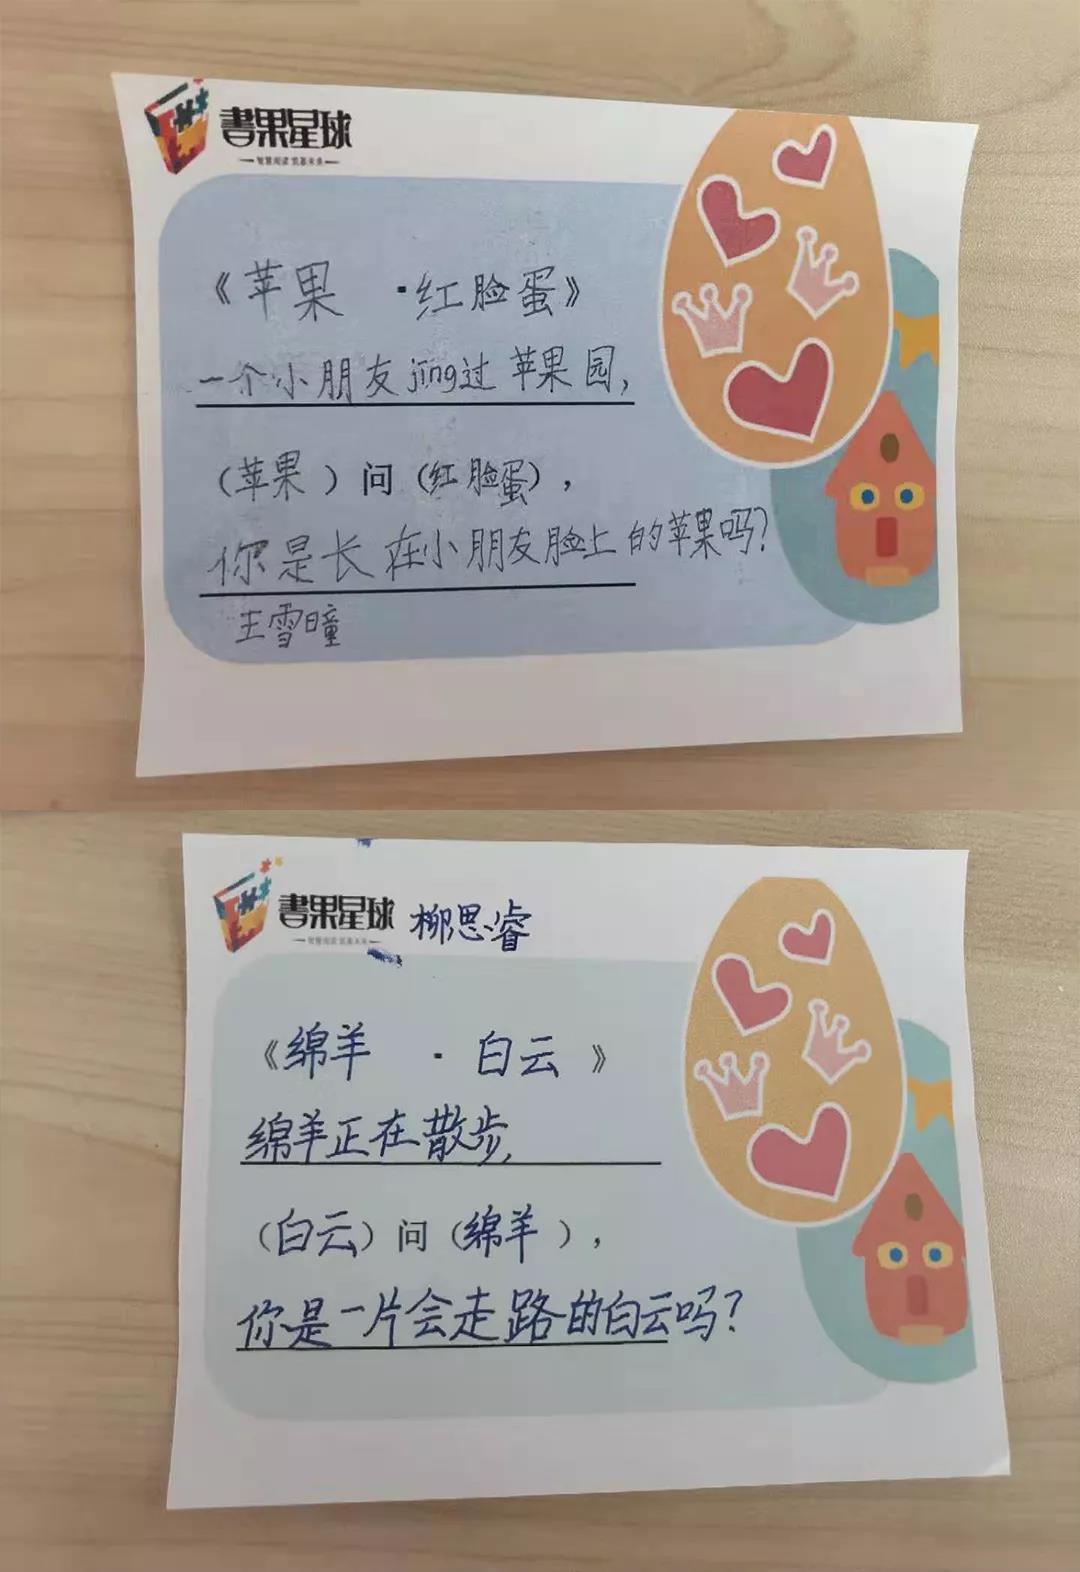 書果星球
智慧阅读 筑基未来
《苹果 ·红脸蛋》
一个小朋友jing过苹果园，
（苹果）问（红脸蛋），
你是长在小朋友脸上的苹果吗？
王雪瞳
書果星球 柳思睿
智慧阅读 筑基未来
《绵羊 · 白云》
绵羊正在散步，
（白云）问（绵羊），
你是一片会走路的白云吗？